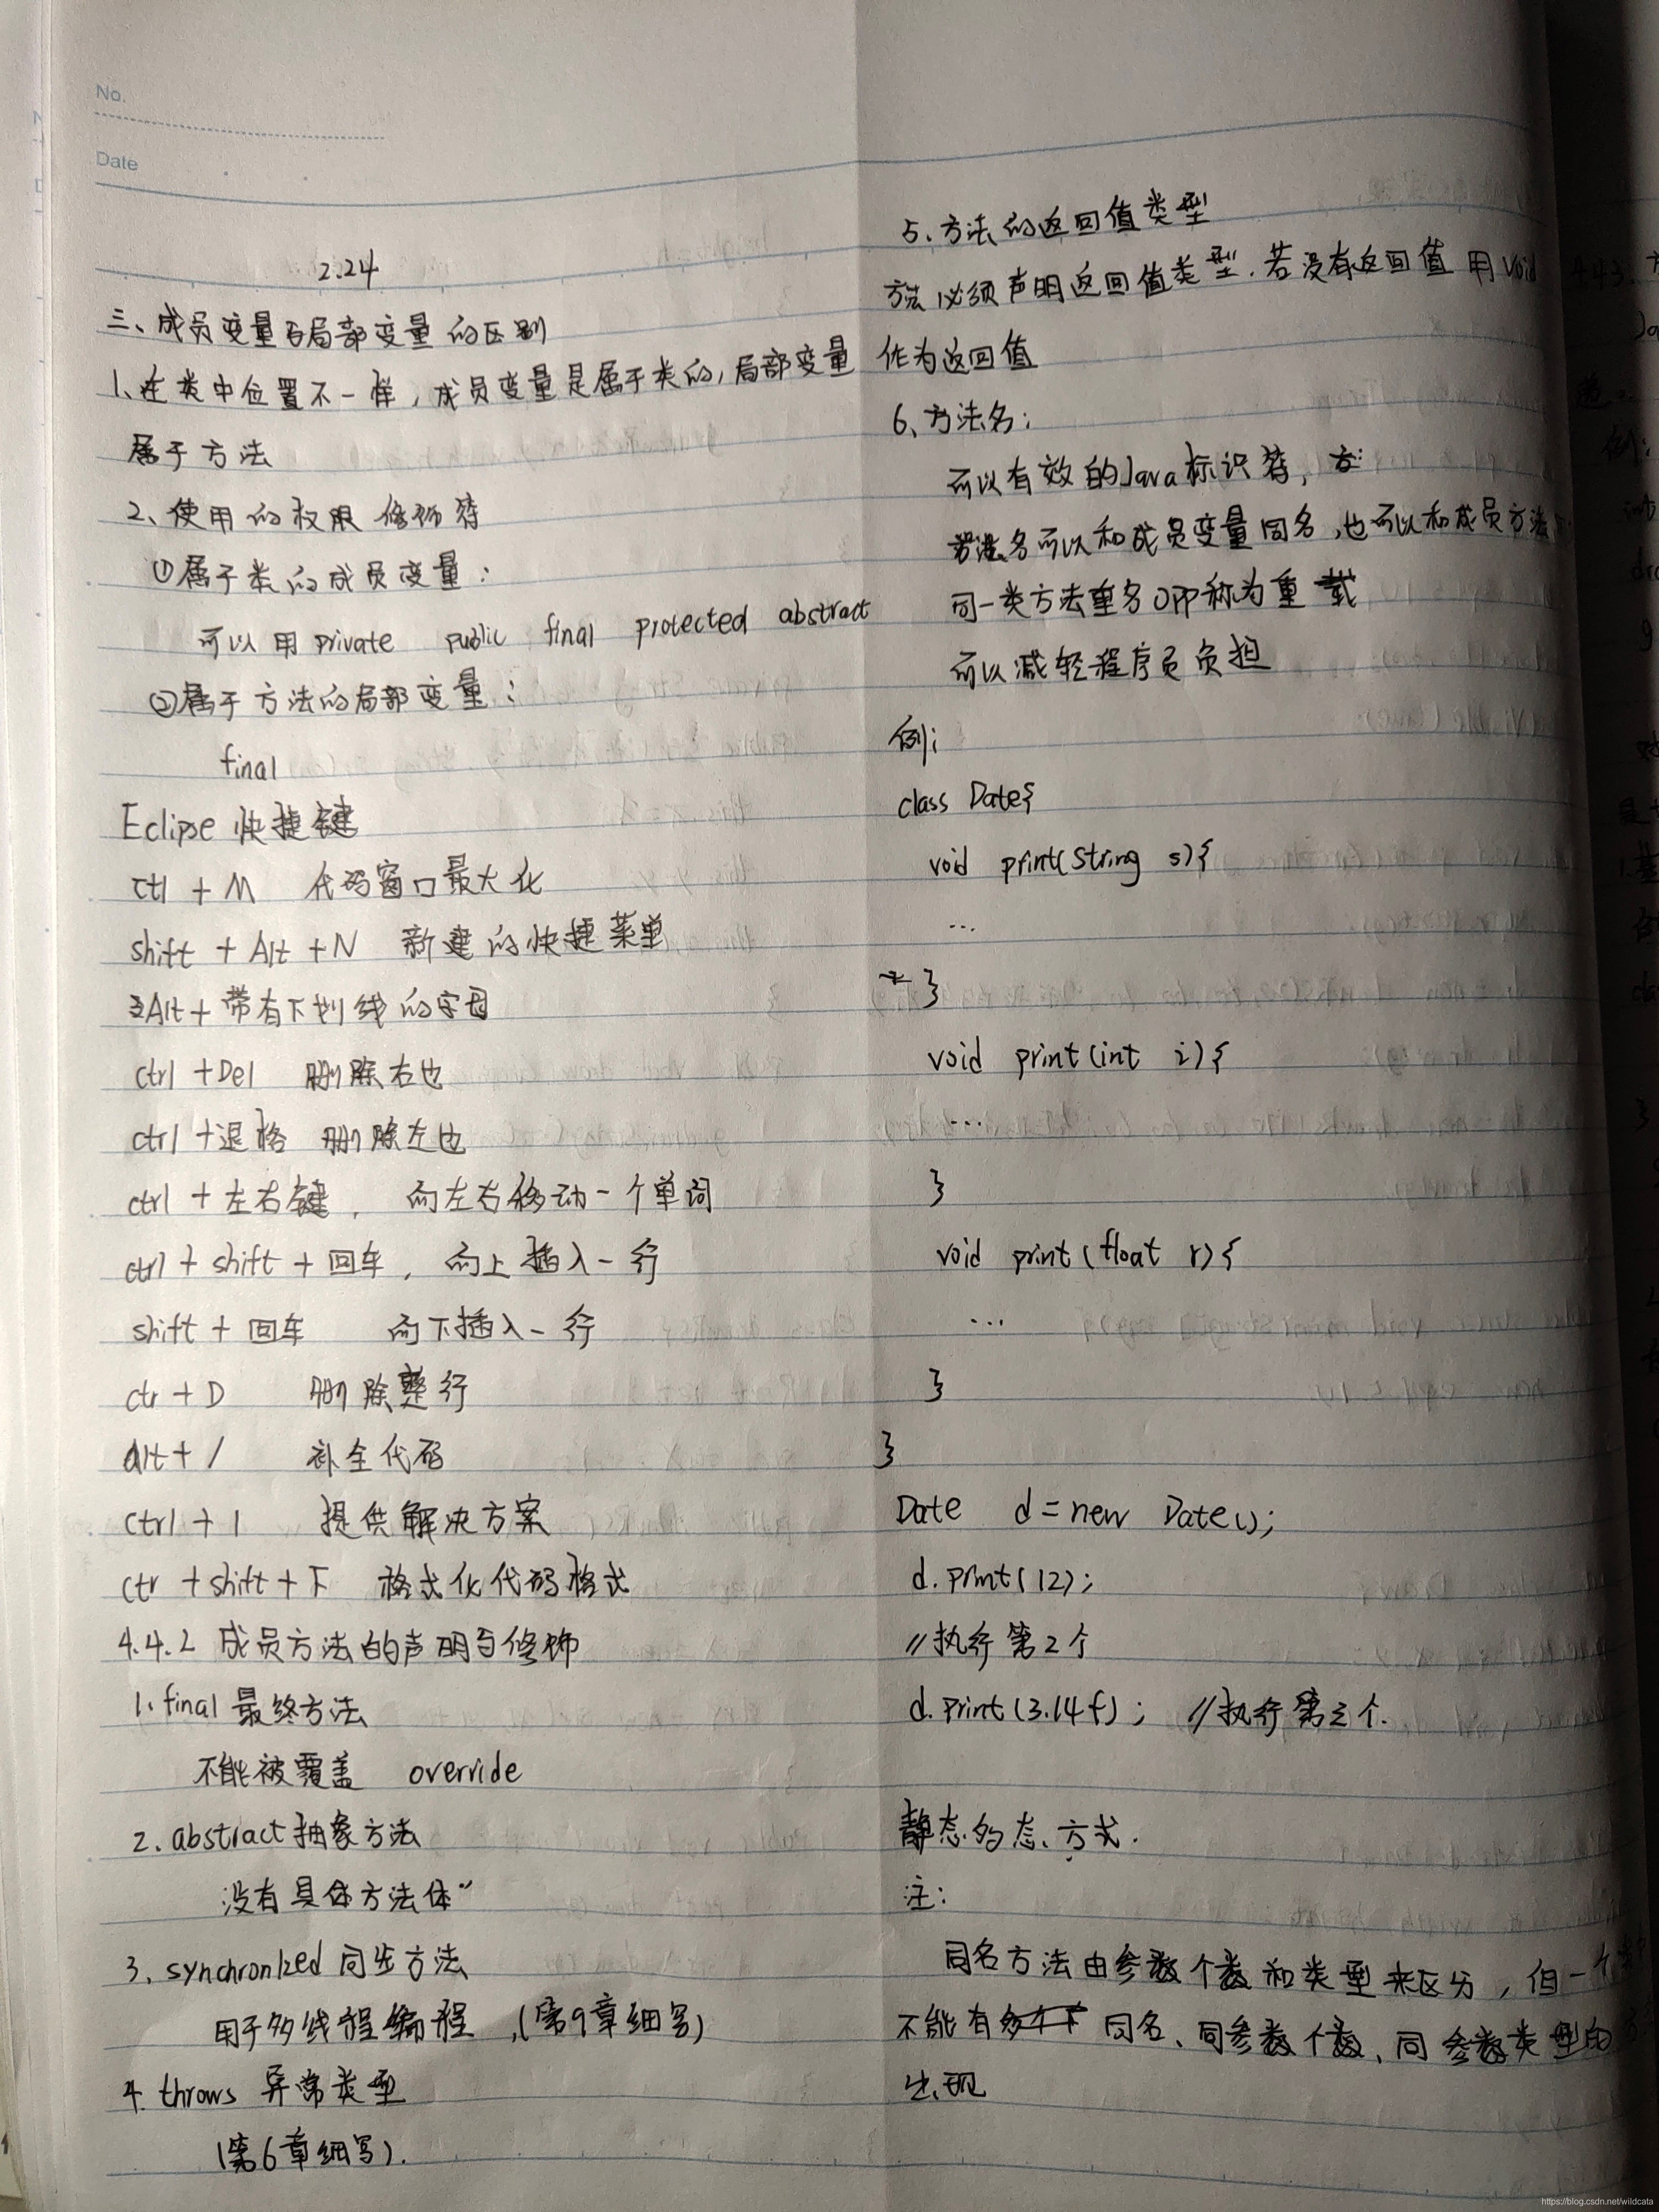 No.
Date
2.24
三、成员变量与局部变量的区别
1、在类中位置不一样，成员变量是属于类的，局部变量
属于方法
2、使用的权限修饰符
①属于类的成员变量：
可以用 private public final protected abstract
②属于方法的局部变量：
final
Eclipse 快捷键
ctl + M 代码窗口最大化
shift + Alt + N 新建的快捷菜单
Alt + 带有下划线的字母
ctrl + Del 删除右边
ctrl + 退格 删除左边
ctrl + 左右键， 向左右移动一个单词
ctrl + shift + 回车， 向上插入一行
shift + 回车 向下插入一行
ctr + D 删除整行
alt + / 补全代码
ctrl + 1 提供解决方案
ctr + shift + F 格式化代码格式
4.4.2 成员方法的声明与修饰
1. final 最终方法
不能被覆盖 override
2. abstract 抽象方法
没有具体方法体
3. synchronized 同步方法
用于多线程编程，(第9章细写)
4. throws 异常类型
(第6章细写).
5、方法的返回值类型
方法必须声明返回值类型. 若没有返回值 用 void
作为返回值
6、方法名：
可以有效的Java标识符，
方法名可以和成员变量同名，也可以和成员方法
同一类方法重名 opp称为重载
可以减轻程序员负担
例;
class Date{
void print(String s){
...
}
void print(int i){
...
}
void print (float r){
...
}
}
Date d = new Date();
d.print(12);
//执行第2个
d.print(3.14f); //执行第三个.
静态的态、方式.
注：
同名方法由参数个数和类型来区分，但一个
不能有 同名、同参数个数、同参数类型的
出现
https://blog.csdn.net/wildcata